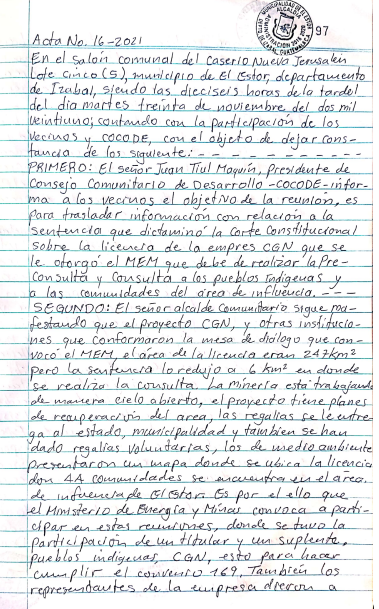 97
Acta No. 16-2021
En el salón comunal del Caserío Nueva Jerusalen
Lote cinco (5), municipio de El Estor, departamento
de Izabal, siendo las dieciseis horas de la tarde
del dia martes treinta de noviembre del dos mil
veintiuno; contando con la participación de los
Vecinos y COCODE, con el objeto de dejar cons-
tancia de los siguiente: - - - - - - - - - -
PRIMERO: El señor Juan Tiul Maquín, presidente de
Consejo Comunitario de Desarrollo -COCODE- infor-
ma a los vecinos el objetivo de la reunión, es
para trasladar información con relación a la
sentencia que dictaminó la Corte Constitucional
sobre la licencia de la empres CGN que se
le otorgó el MEM que debe de realizar la Pre-
Consulta y Consulta a los pueblos Indigenas y
a las comunidades del área de influencia. - - -
SEGUNDO: El señor alcalde Comunitario sigue ma-
festando que el proyecto CGN, y otras institucio-
nes que conformaron la mesa de diálogo que con-
vocó el MEM, el área de licencia eran 247km²
pero la sentencia lo redujo a 6 km² en donde
se realiza la consulta. La minería está trabajando
de manera cielo abierto, el proyecto tiene planes
de recuperación del area, las regalías se le entre-
ga al estado, municipalidad y tambien se han
dado regalías voluntarias, los de medio ambiente
presentaron un mapa donde se ubica la licencia
don 44 comunidades se encuentra en el área
de influencia de El Estor. Es por ello que
el Ministerio de Energía y Minas convoca a parti-
cipar en estas reuniones, donde se tuvo la
participación de un titular y un suplente,
pueblos indigenas, CGN, esto para hacer
cumplir el convenio 169, También los
representantes de la empresa dieron a